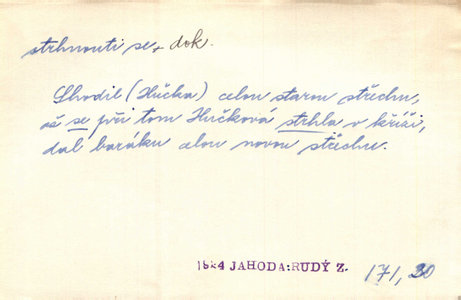 strhnouti se, dok.
Shodil (Hučka) celou starou střechu,
až se při tom Hučková strhla v kříži,
dal baráku celou novou střechu.
1954 JAHODA:RUDÝ Z. 171, 20